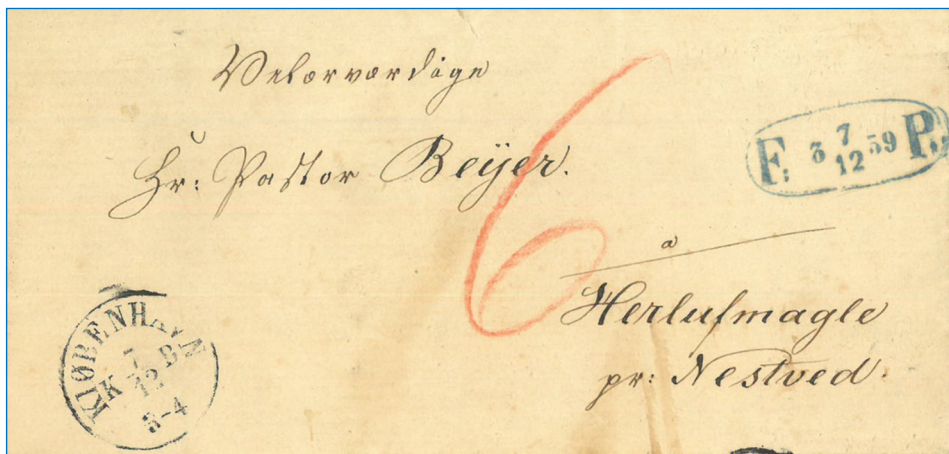 Velærværdige
Hr: Pastor Beÿer.
6
F: 3 7/12 59 P:
a
Herlufmagle
pr: Nestved.
KIØBENHAVN
K 7/12 B
3-4